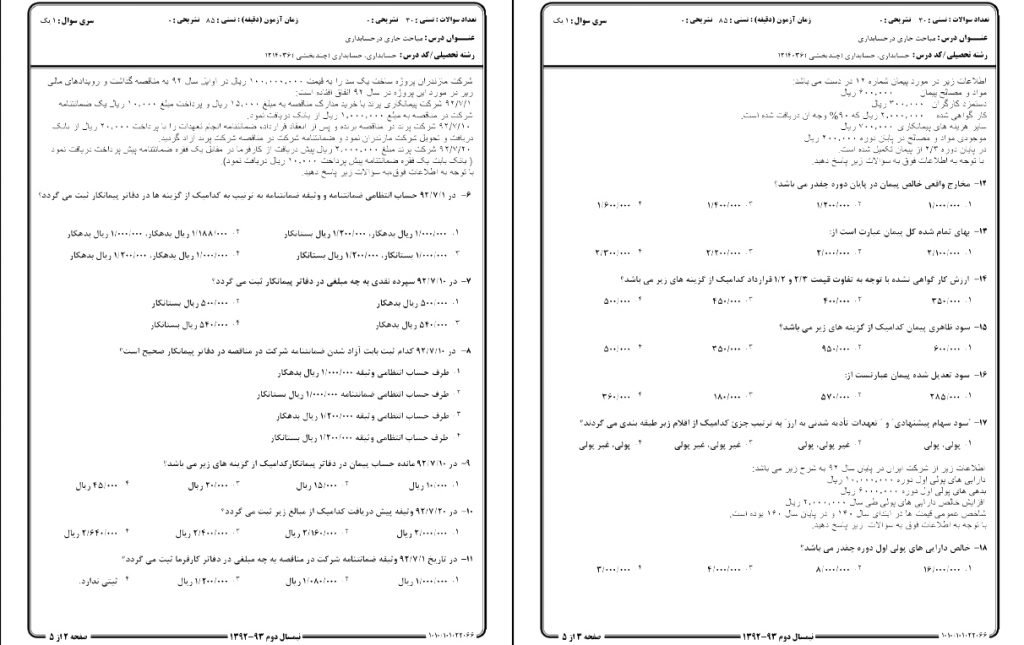 سری سوال : ۱ یک
زمان آزمون (دقیقه) : تستی : ۸۵ تشریحی : ۰
تعداد سوالات : تستی : ۳۰ تشریحی : ۰
عنـــوان درس : مباحث جاری در حسابداری
رشته تحصیلی/کد درس : حسابداری، حسابداری (چندبخشی) ۱۲۱۴۰۳۶
اطلاعات زیر در مورد پیمان شماره ۱۲ در دست می باشد:
مواد و مصالح پیمان ۶۰۰.۰۰۰ ریال
دستمزد کارگران ۳۰۰.۰۰۰ ریال
کار گواهی شده ۲.۰۰۰.۰۰۰ ریال که ۹۰% وجه آن دریافت شده است.
سایر هزینه های پیمانکاری ۷۰۰.۰۰۰ ریال
موجودی مواد و مصالح در پایان دوره ۲۰۰.۰۰۰ ریال
در پایان دوره ۲/۳ از پیمان تکمیل شده است.
با توجه به اطلاعات فوق به سوالات زیر پاسخ دهید
۱۲- مخارج واقعی خالص پیمان در پایان دوره چقدر می باشد؟
۱. ۱/۰۰۰/۰۰۰ ۲. ۱/۲۰۰/۰۰۰ ۳. ۱/۴۰۰/۰۰۰ ۴. ۱/۶۰۰/۰۰۰
۱۳- بهای تمام شده کل پیمان عبارت است از:
۱. ۲/۱۰۰/۰۰۰ ۲. ۲/۰۰۰/۰۰۰ ۳. ۲/۲۰۰/۰۰۰ ۴. ۲/۳۰۰/۰۰۰
۱۴- ارزش کار گواهی نشده با توجه به تفاوت قیمت ۲/۳ و ۱/۲ قرارداد کدامیک از گزینه های زیر می باشد؟
۱. ۳۵۰/۰۰۰ ۲. ۴۰۰/۰۰۰ ۳. ۴۵۰/۰۰۰ ۴. ۵۰۰/۰۰۰
۱۵- سود ظاهری پیمان کدامیک از گزینه های زیر می باشد؟
۱. ۶۰۰/۰۰۰ ۲. ۹۵۰/۰۰۰ ۳. ۳۵۰/۰۰۰ ۴. ۵۰۰/۰۰۰
۱۶- سود تعدیل شده پیمان عبارتست از:
۱. ۲۸۵/۰۰۰ ۲. ۵۷۰/۰۰۰ ۳. ۱۸۰/۰۰۰ ۴. ۳۶۰/۰۰۰
۱۷- "سود سهام پیشنهادی" و " تعهدات تأدیه شدنی به ارز" به ترتیب جزئ کدامیک از اقلام زیر طبقه بندی می گردند؟
۱. پولی، پولی ۲. غیر پولی، پولی ۳. غیر پولی، غیر پولی ۴. پولی، غیر پولی
اطلاعات زیر از شرکت ایران در پایان سال ۹۲ به شرح زیر می باشد:
دارایی های پولی اول دوره ۱۰.۰۰۰.۰۰۰ ریال
بدهی های پولی اول دوره ۶.۰۰۰.۰۰۰ ریال
افزایش خالص دارایی های پولی طی سال ۲.۰۰۰.۰۰۰ ریال
شاخص عمومی قیمت ها در ابتدای سال ۱۴۰ و در پایان سال ۱۶۰ بوده است.
با توجه به اطلاعات فوق به سوالات زیر پاسخ دهید.
۱۸- خالص دارایی های پولی اول دوره چقدر می باشد؟
۱. ۱۶/۰۰۰/۰۰۰ ۲. ۸/۰۰۰/۰۰۰ ۳. ۴/۰۰۰/۰۰۰ ۴. ۳/۰۰۰/۰۰۰
صفحه ۳ از ۵
نیمسال دوم ۹۳-۱۳۹۲
۱۰۱۰/۱۰۱۰۲۲۰۶۶
سری سوال : ۱ یک
زمان آزمون (دقیقه) : تستی : ۸۵ تشریحی : ۰
تعداد سوالات : تستی : ۳۰ تشریحی : ۰
عنـــوان درس : مباحث جاری در حسابداری
رشته تحصیلی/کد درس : حسابداری، حسابداری (چندبخشی) ۱۲۱۴۰۳۶
شرکت مازندران پروژه ساخت یک سد را به قیمت ۱۰۰.۰۰۰.۰۰۰ ریال در اوایل سال ۹۲ به مناقصه گذاشت و رویدادهای مالی
زیر در مورد این پروژه در سال ۹۲ اتفاق افتاده است:
۹۲/۷/۱ شرکت پیمانکاری پرند با خرید مدارک مناقصه به مبلغ ۱۵.۰۰۰ ریال و پرداخت مبلغ ۱۰.۰۰۰ ریال یک ضمانتنامه
شرکت در مناقصه به مبلغ ۱.۰۰۰.۰۰۰ ریال از بانک دریافت نمود.
۹۲/۷/۱۰ شرکت پرند در مناقصه برنده و پس از انعقاد قرارداد، ضمانتنامه انجام تعهدات را با پرداخت ۲۰.۰۰۰ ریال از بانک
دریافت و تحویل شرکت مازندران نمود و ضمانتنامه شرکت در مناقصه شرکت پرند آزاد گردید.
۹۲/۷/۲۰ شرکت پرند مبلغ ۲.۰۰۰.۰۰۰ ریال پیش دریافت از کارفرما در مقابل یک فقره ضمانتنامه پیش پرداخت دریافت نمود
( بانک بابت یک فقره ضمانتنامه پیش پرداخت ۱۰.۰۰۰ ریال دریافت نمود)
با توجه به اطلاعات فوق،به سوالات زیر پاسخ دهید.
۶- در ۹۲/۷/۱ حساب انتظامی ضمانتنامه و وثیقه ضمانتنامه به ترتیب به کدامیک از گزینه ها در دفاتر پیمانکار ثبت می گردد؟
۱. ۱/۰۰۰/۰۰۰ ریال بدهکار، ۱/۲۰۰/۰۰۰ ریال بستانکار ۲. ۱/۱۸۸/۰۰۰ ریال بدهکار، ۱/۰۰۰/۰۰۰ ریال بدهکار
۳. ۱/۰۰۰/۰۰۰ بستانکار، ۱/۲۰۰/۰۰۰ ریال بستانکار ۴. ۱/۰۰۰/۰۰۰ ریال بدهکار، ۱/۲۰۰/۰۰۰ ریال بدهکار
۷- در ۹۲/۷/۱۰ سپرده نقدی به چه مبلغی در دفاتر پیمانکار ثبت می گردد؟
۱. ۵۰۰/۰۰۰ ریال بدهکار ۲. ۵۰۰/۰۰۰ ریال بستانکار
۳. ۵۴۰/۰۰۰ ریال بدهکار ۴. ۵۴۰/۰۰۰ ریال بستانکار
۸- در ۹۲/۷/۱۰ کدام ثبت بابت آزاد شدن ضمانتنامه شرکت در مناقصه در دفاتر پیمانکار صحیح است؟
۱. طرف حساب انتظامی وثیقه ۱/۰۰۰/۰۰۰ ریال بدهکار
۲. طرف حساب انتظامی ضمانتنامه ۱/۰۰۰/۰۰۰ ریال بستانکار
۳. طرف حساب انتظامی وثیقه ۱/۲۰۰/۰۰۰ ریال بدهکار
۴. طرف حساب انتظامی وثیقه ۱/۲۰۰/۰۰۰ ریال بستانکار
۹- در ۹۲/۷/۱۰ مانده حساب پیمان در دفاتر پیمانکارکدامیک از گزینه های زیر می باشد؟
۱. ۱۰/۰۰۰ ریال ۲. ۱۵/۰۰۰ ریال ۳. ۲۰/۰۰۰ ریال ۴. ۴۵/۰۰۰ ریال
۱۰- در ۹۲/۷/۲۰ وثیقه پیش دریافت کدامیک از مبالغ زیر ثبت می گردد؟
۱. ۲/۰۰۰/۰۰۰ ریال ۲. ۲/۱۶۰/۰۰۰ ریال ۳. ۲/۴۰۰/۰۰۰ ریال ۴. ۲/۶۴۰/۰۰۰ ریال
۱۱- در تاریخ ۹۲/۷/۱ وثیقه ضمانتنامه شرکت در مناقصه به چه مبلغی در دفاتر کارفرما ثبت می گردد؟
۱. ۱/۰۰۰/۰۰۰ ریال ۲. ۱/۰۸۰/۰۰۰ ریال ۳. ۱/۲۰۰/۰۰۰ ریال ۴. ثبتی ندارد.
صفحه ۲ از ۵
نیمسال دوم ۹۳-۱۳۹۲
۱۰۱۰/۱۰۱۰۲۲۰۶۶